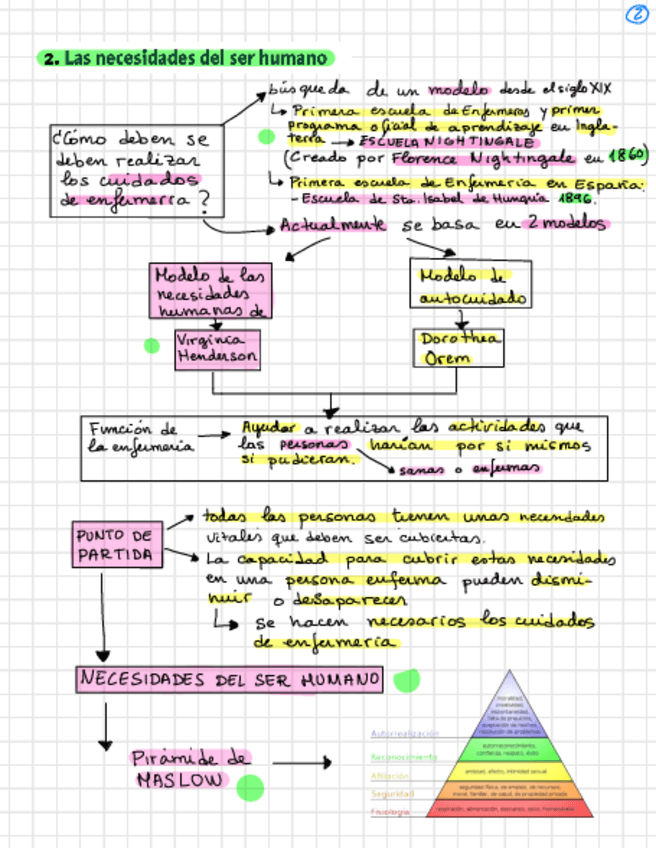 2
2. Las necesidades del ser humano
búsqueda de un modelo desde el siglo XIX
↳ Primera escuela de Enfermeras y primer
programa oficial de aprendizaje en Ingla-
terra → ESCUELA NIGHTINGALE
(Creado por Florence Nightingale en 1860)
↳ Primera escuela de Enfermería en España:
- Escuela de Sta. Isabel de Hungría 1896.
¿Cómo deben se
deben realizar
los cuidados
de enfermería?
Actualmente se basa en 2 modelos
Modelo de las
necesidades
humanas de
Virginia
Henderson
Modelo de
autocuidado
Dorothea
Orem
Función de
la enfermería
Ayudar a realizar las actividades que
las personas harían por si mismos
si pudieran.
sanas o enfermas
PUNTO DE
PARTIDA
todas las personas tienen unas necesidades
vitales que deben ser cubiertas.
La capacidad para cubrir estas necesidades
en una persona enferma pueden dismi-
nuir o desaparecer
↳ se hacen necesarios los cuidados
de enfermería
NECESIDADES DEL SER HUMANO
Pirámide de
MASLOW
Autorrealización
Reconocimiento
Afiliación
Seguridad
Fisiología
moralidad,
creatividad,
espontaneidad,
falta de prejuicios,
aceptación de hechos,
resolución de problemas
autorreconocimiento,
confianza, respeto, éxito
amistad, afecto, intimidad sexual
seguridad física, de empleo, de recursos,
moral, familiar, de salud, de propiedad privada
respiración, alimentación, descanso, sexo, homeostasis